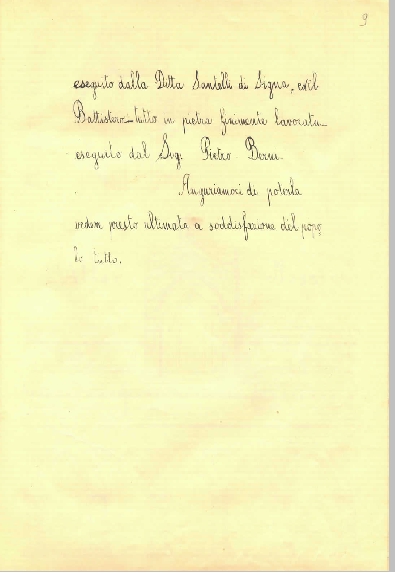 9
eseguito dalla Ditta Santelli di Signa, ed il
Battistero tutto in pietra finemente lavorata
eseguito dal Sig. Pietro
Auguriamoci di poterla
vedere presto ultimata a soddisfazione del popo
lo tutto.